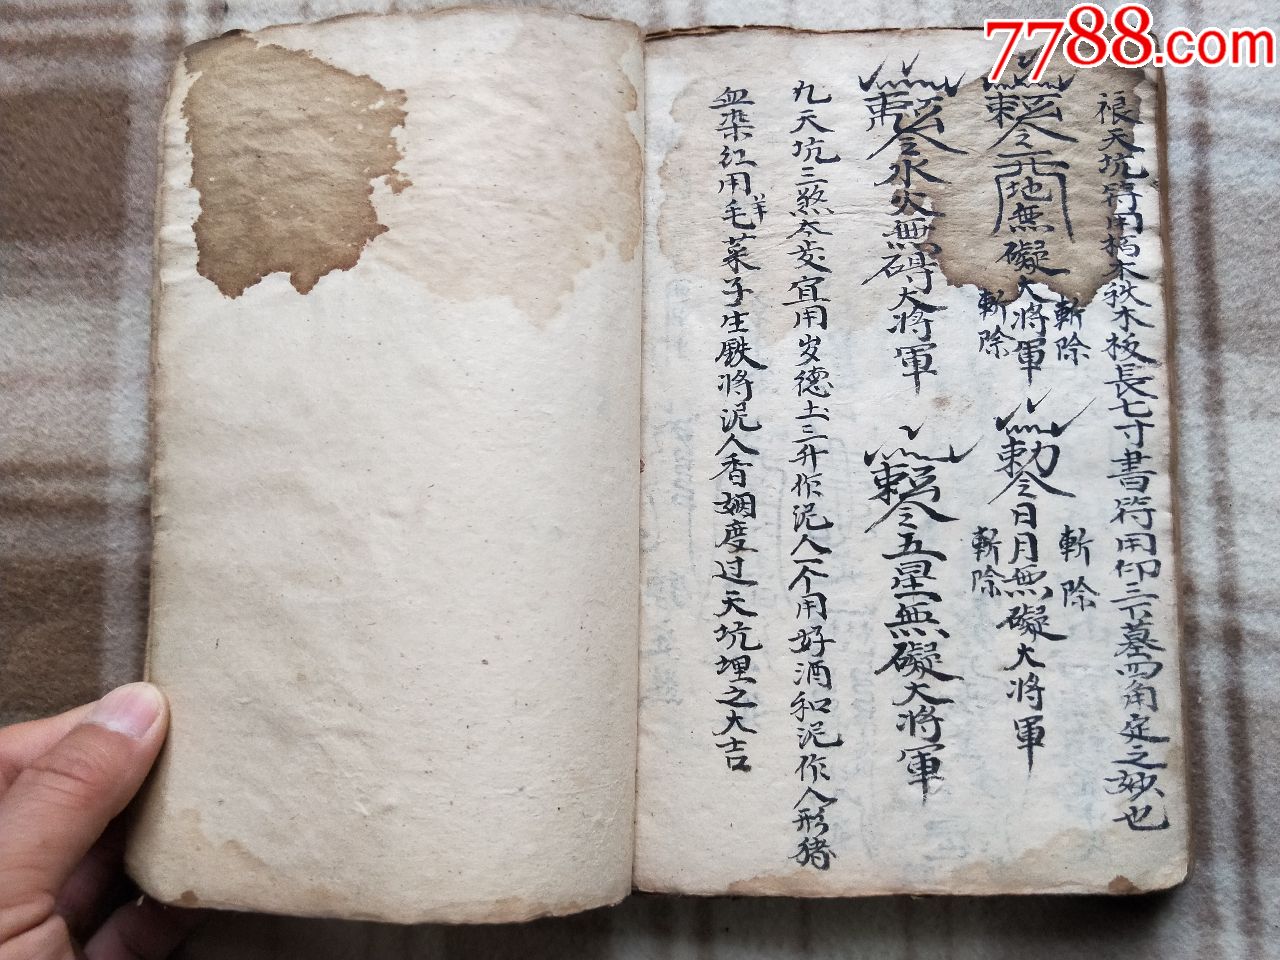 7788.com
天坑符用朽木秋木板長七寸書符用印三下墓四角定之妙也
敕令天地無礙大將軍
斬除
斬除
勅令日月無礙大將軍
斬除
斬除
敕令水火無碍大將軍
敕令五星無礙大將軍
凡天坑三煞太岁宜用岁德土三升作泥人一个用好酒和泥作人形猪
血染红用毛菜子生鉄将泥人香姻度过天坑埋之大吉
羊